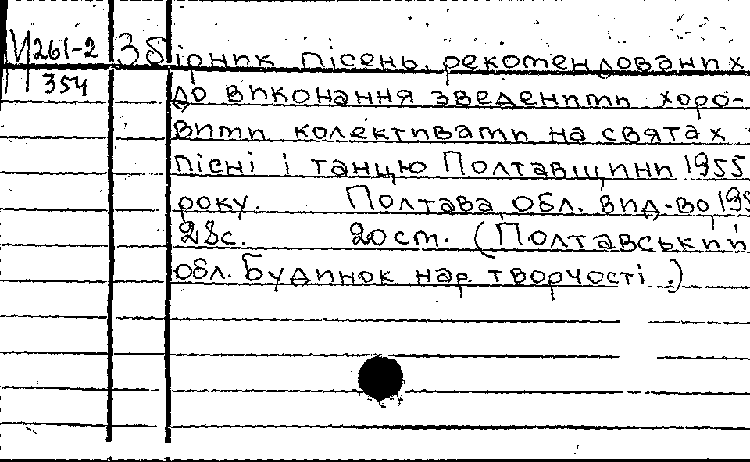 И 261-2 Збірник пісень, рекомендованих
354 до виконання зведеними хоро-
вими колективами на святах
пісні і танцю Полтавщини 1955
року. Полтава, Обл. вид-во,
28с. 20 ст. (Полтавський
обл. Будинок нар. творчості.)